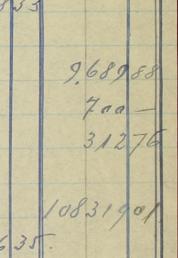 9.68988
700 —
31276
10831901
635.